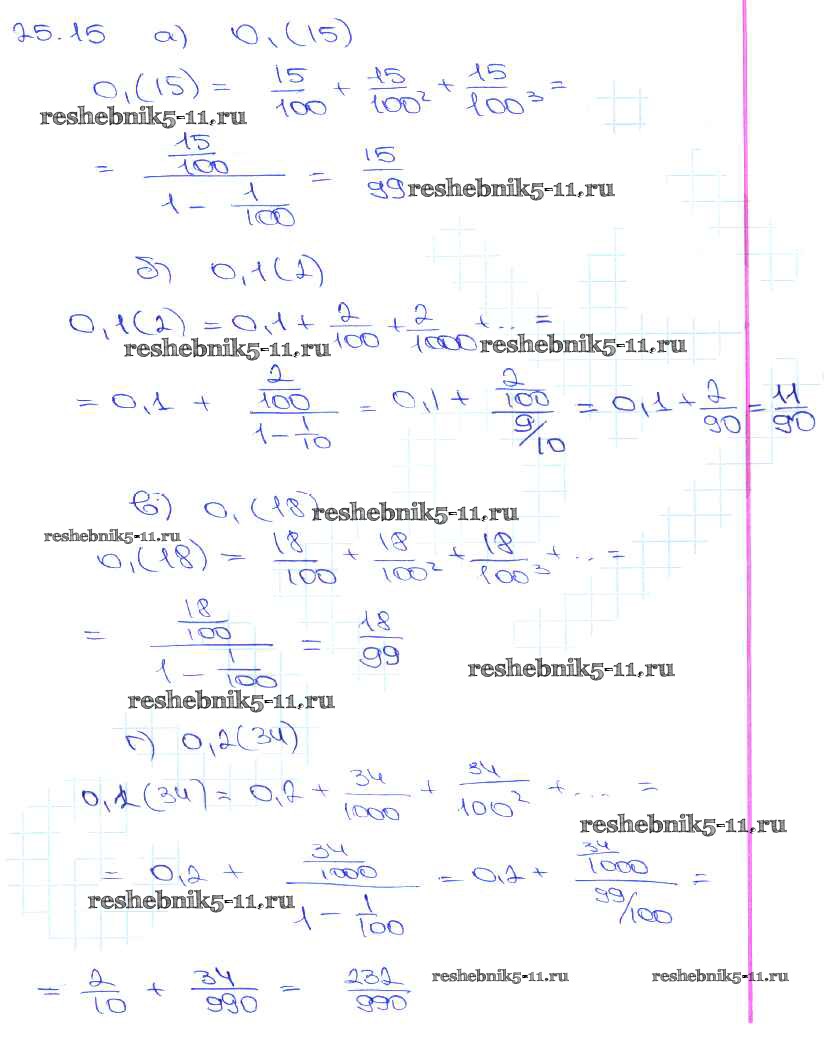 25.15 а) 0,(15)
0,(15) = 15/100 + 15/100² + 15/100³ =
reshebnik5-11.ru
= (15/100)/(1 - 1/100) = 15/99
reshebnik5-11.ru
б) 0,1(2)
0,1(2) = 0,1 + 2/100 + 2/1000 + ... =
reshebnik5-11.ru reshebnik5-11.ru
= 0,1 + (2/100)/(1 - 1/10) = 0,1 + (2/100)/(9/10) = 0,1 + 2/90 = 11/90
в) 0,(18)
reshebnik5-11.ru
reshebnik5-11.ru
0,(18) = 18/100 + 18/100² + 18/100³ + ... =
= (18/100)/(1 - 1/100) = 18/99
reshebnik5-11.ru
reshebnik5-11.ru
г) 0,2(34)
0,2(34) = 0,2 + 34/1000 + 34/100² + ... =
reshebnik5-11.ru
= 0,2 + (34/1000)/(1 - 1/100) = 0,2 + (34/1000)/(99/100) =
reshebnik5-11.ru
= 2/10 + 34/990 = 232/990
reshebnik5-11.ru reshebnik5-11.ru